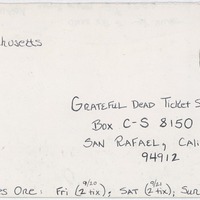 husetts
GRATEFUL DEAD TICKET S
BOX C-S 8150
SAN RAFAEL, CALI
94912
es ONE: FRI (9/20 2 tix), SAT (9/21 2 tix), SUN